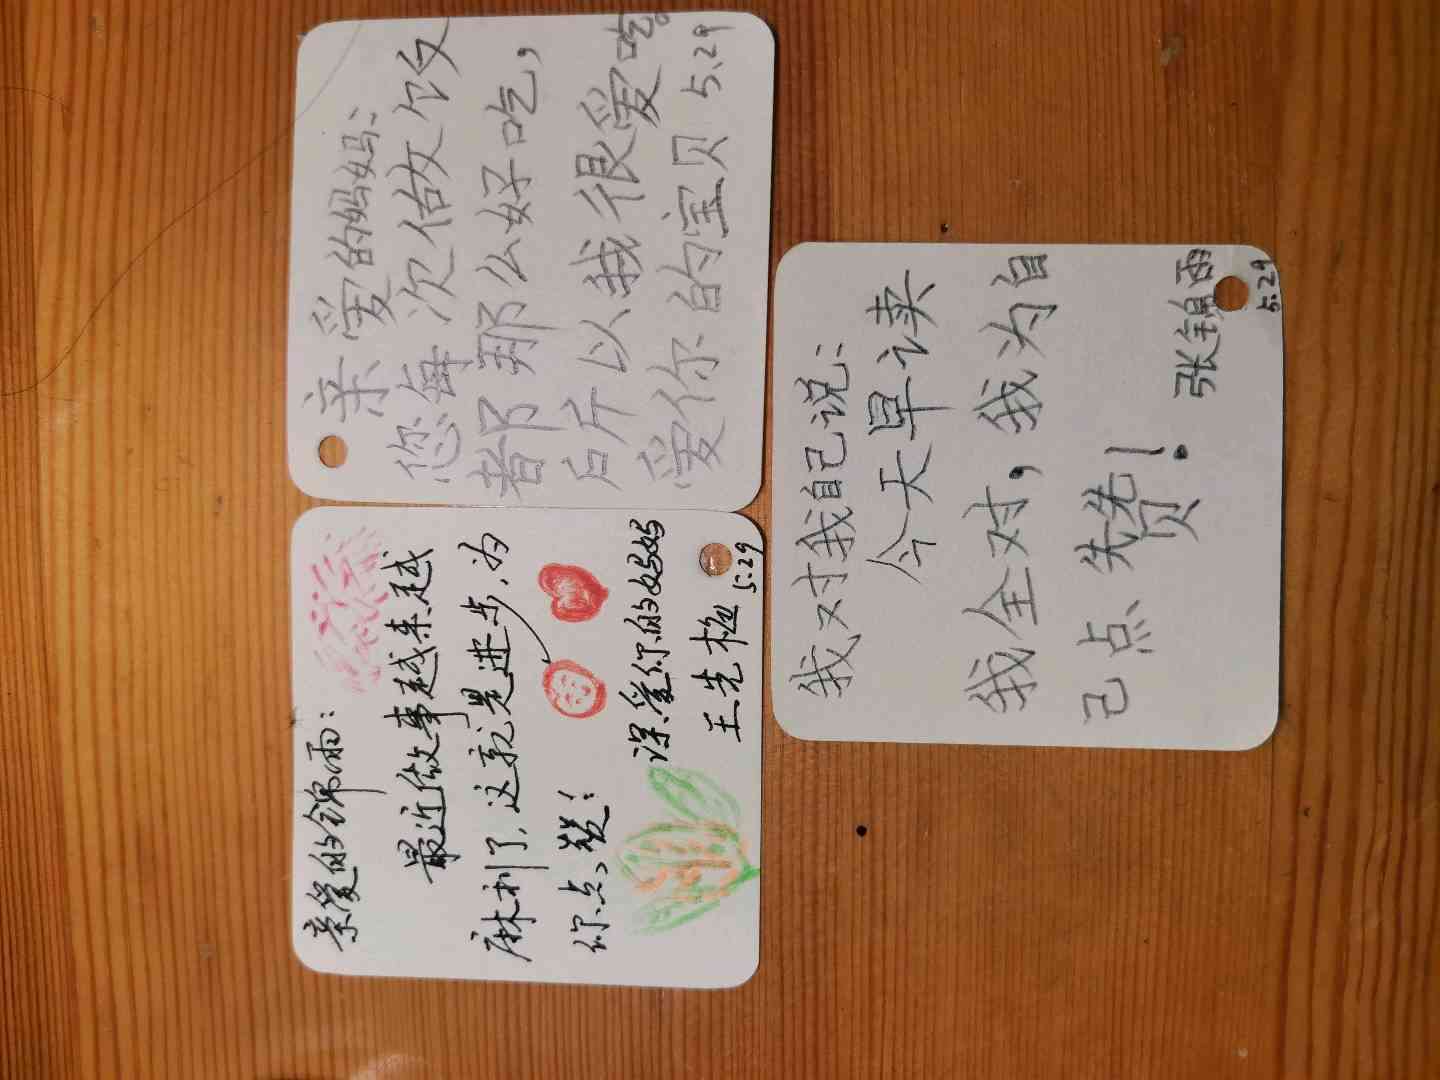 亲爱的锦雨：
最近做事越来越
麻利了，这就是进步，为
你点赞！
深爱你的妈妈
王先
5.29
亲爱的妈妈：
您每次做饭
都那么好吃，
所以我很爱吃。
爱你的宝贝 5.29
我对我自己说：
今天早读
我全对，我为自
己点赞！
张锦雨
5.29